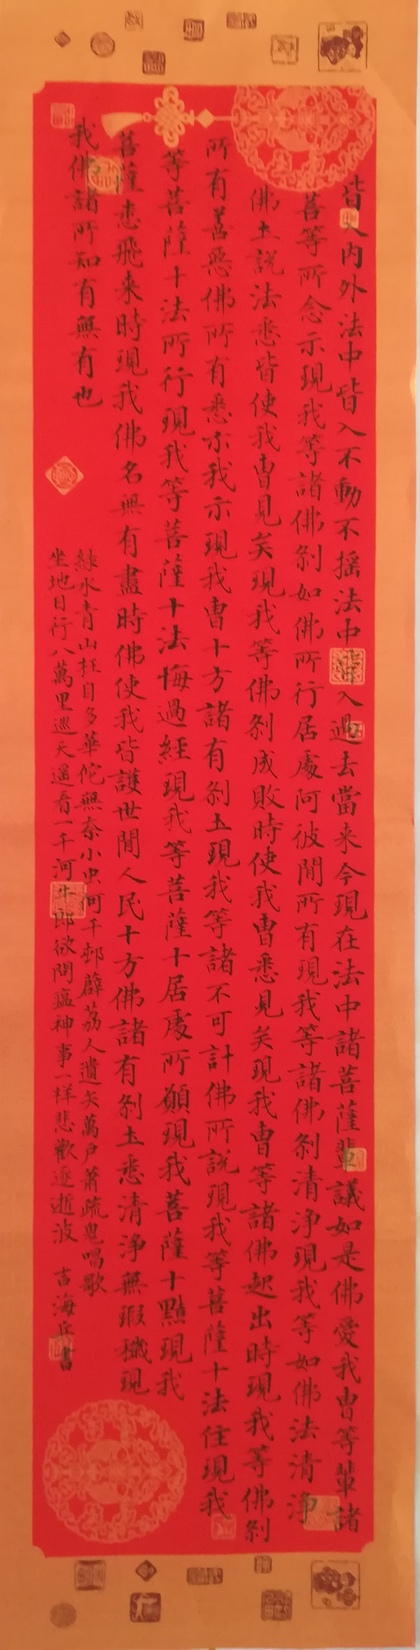 皆入内外法中皆入不動不摇法中皆入過去當来今現在法中諸菩薩輩議如是佛愛我曹等輩諸
菩等所念示現我等諸佛刹如佛所行居處阿彼間所有現我等諸佛刹清淨現我等如佛法清淨
佛土説法悉皆使我曹見矣現我等佛刹成敗時使我曹悉見矣現我曹等諸佛起出時現我等佛刹
所有善惡佛所有悉示我示現我曹十方諸有刹土現我等諸不可計佛所説現我等菩薩十法住現我
等菩薩十法所行現我等菩薩十法悔過經現我等菩薩十居處所願現我菩薩十黠現我
菩薩悉飛来時現我佛名無有盡時佛使我皆護世間人民十方佛諸有刹土悉清淨無瑕穢現
我佛諸所知有無有也
緑水青山枉自多華佗無奈小虫何千邨薜荔人遺矢萬户萧疏鬼唱歌
坐地日行八萬里巡天遥看一千河牛郎欲問瘟神事一样悲歡逐逝波 吉海岳書